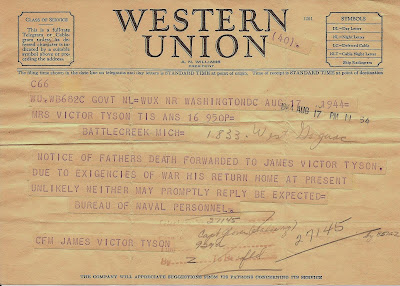 CLASS OF SERVICE
This is a full-rate Telegram or Cablegram unless its deferred character is indicated by a suitable symbol above or preceding the address.
WESTERN UNION
1201
(40)
A. N. WILLIAMS
PRESIDENT
SYMBOLS
DL=Day Letter
NL=Night Letter
LC=Deferred Cable
NLT=Cable Night Letter
Ship Radiogram
The filing time shown in the date line on telegrams and day letters is STANDARD TIME at point of origin. Time of receipt is STANDARD TIME at point of destination
C66
WB682C GOVT NL=WUX NR WASHINGTONDC AUG 17 1944=
MRS VICTOR TYSON TIS ANS 16 950P=
1944 AUG 17 PM 11 36
BATTLECREEK MICH= 1833 West
NOTICE OF FATHERS DEATH FORWARDED TO JAMES VICTOR TYSON.
DUE TO EXIGENCIES OF WAR HIS RETURN HOME AT PRESENT
UNLIKELY NEITHER MAY PROMPTLY REPLY BE EXPECTED=
BUREAU OF NAVAL PERSONNEL.
27145
27145
CFM JAMES VICTOR TYSON
THE COMPANY WILL APPRECIATE SUGGESTIONS FROM ITS PATRONS CONCERNING ITS SERVICE